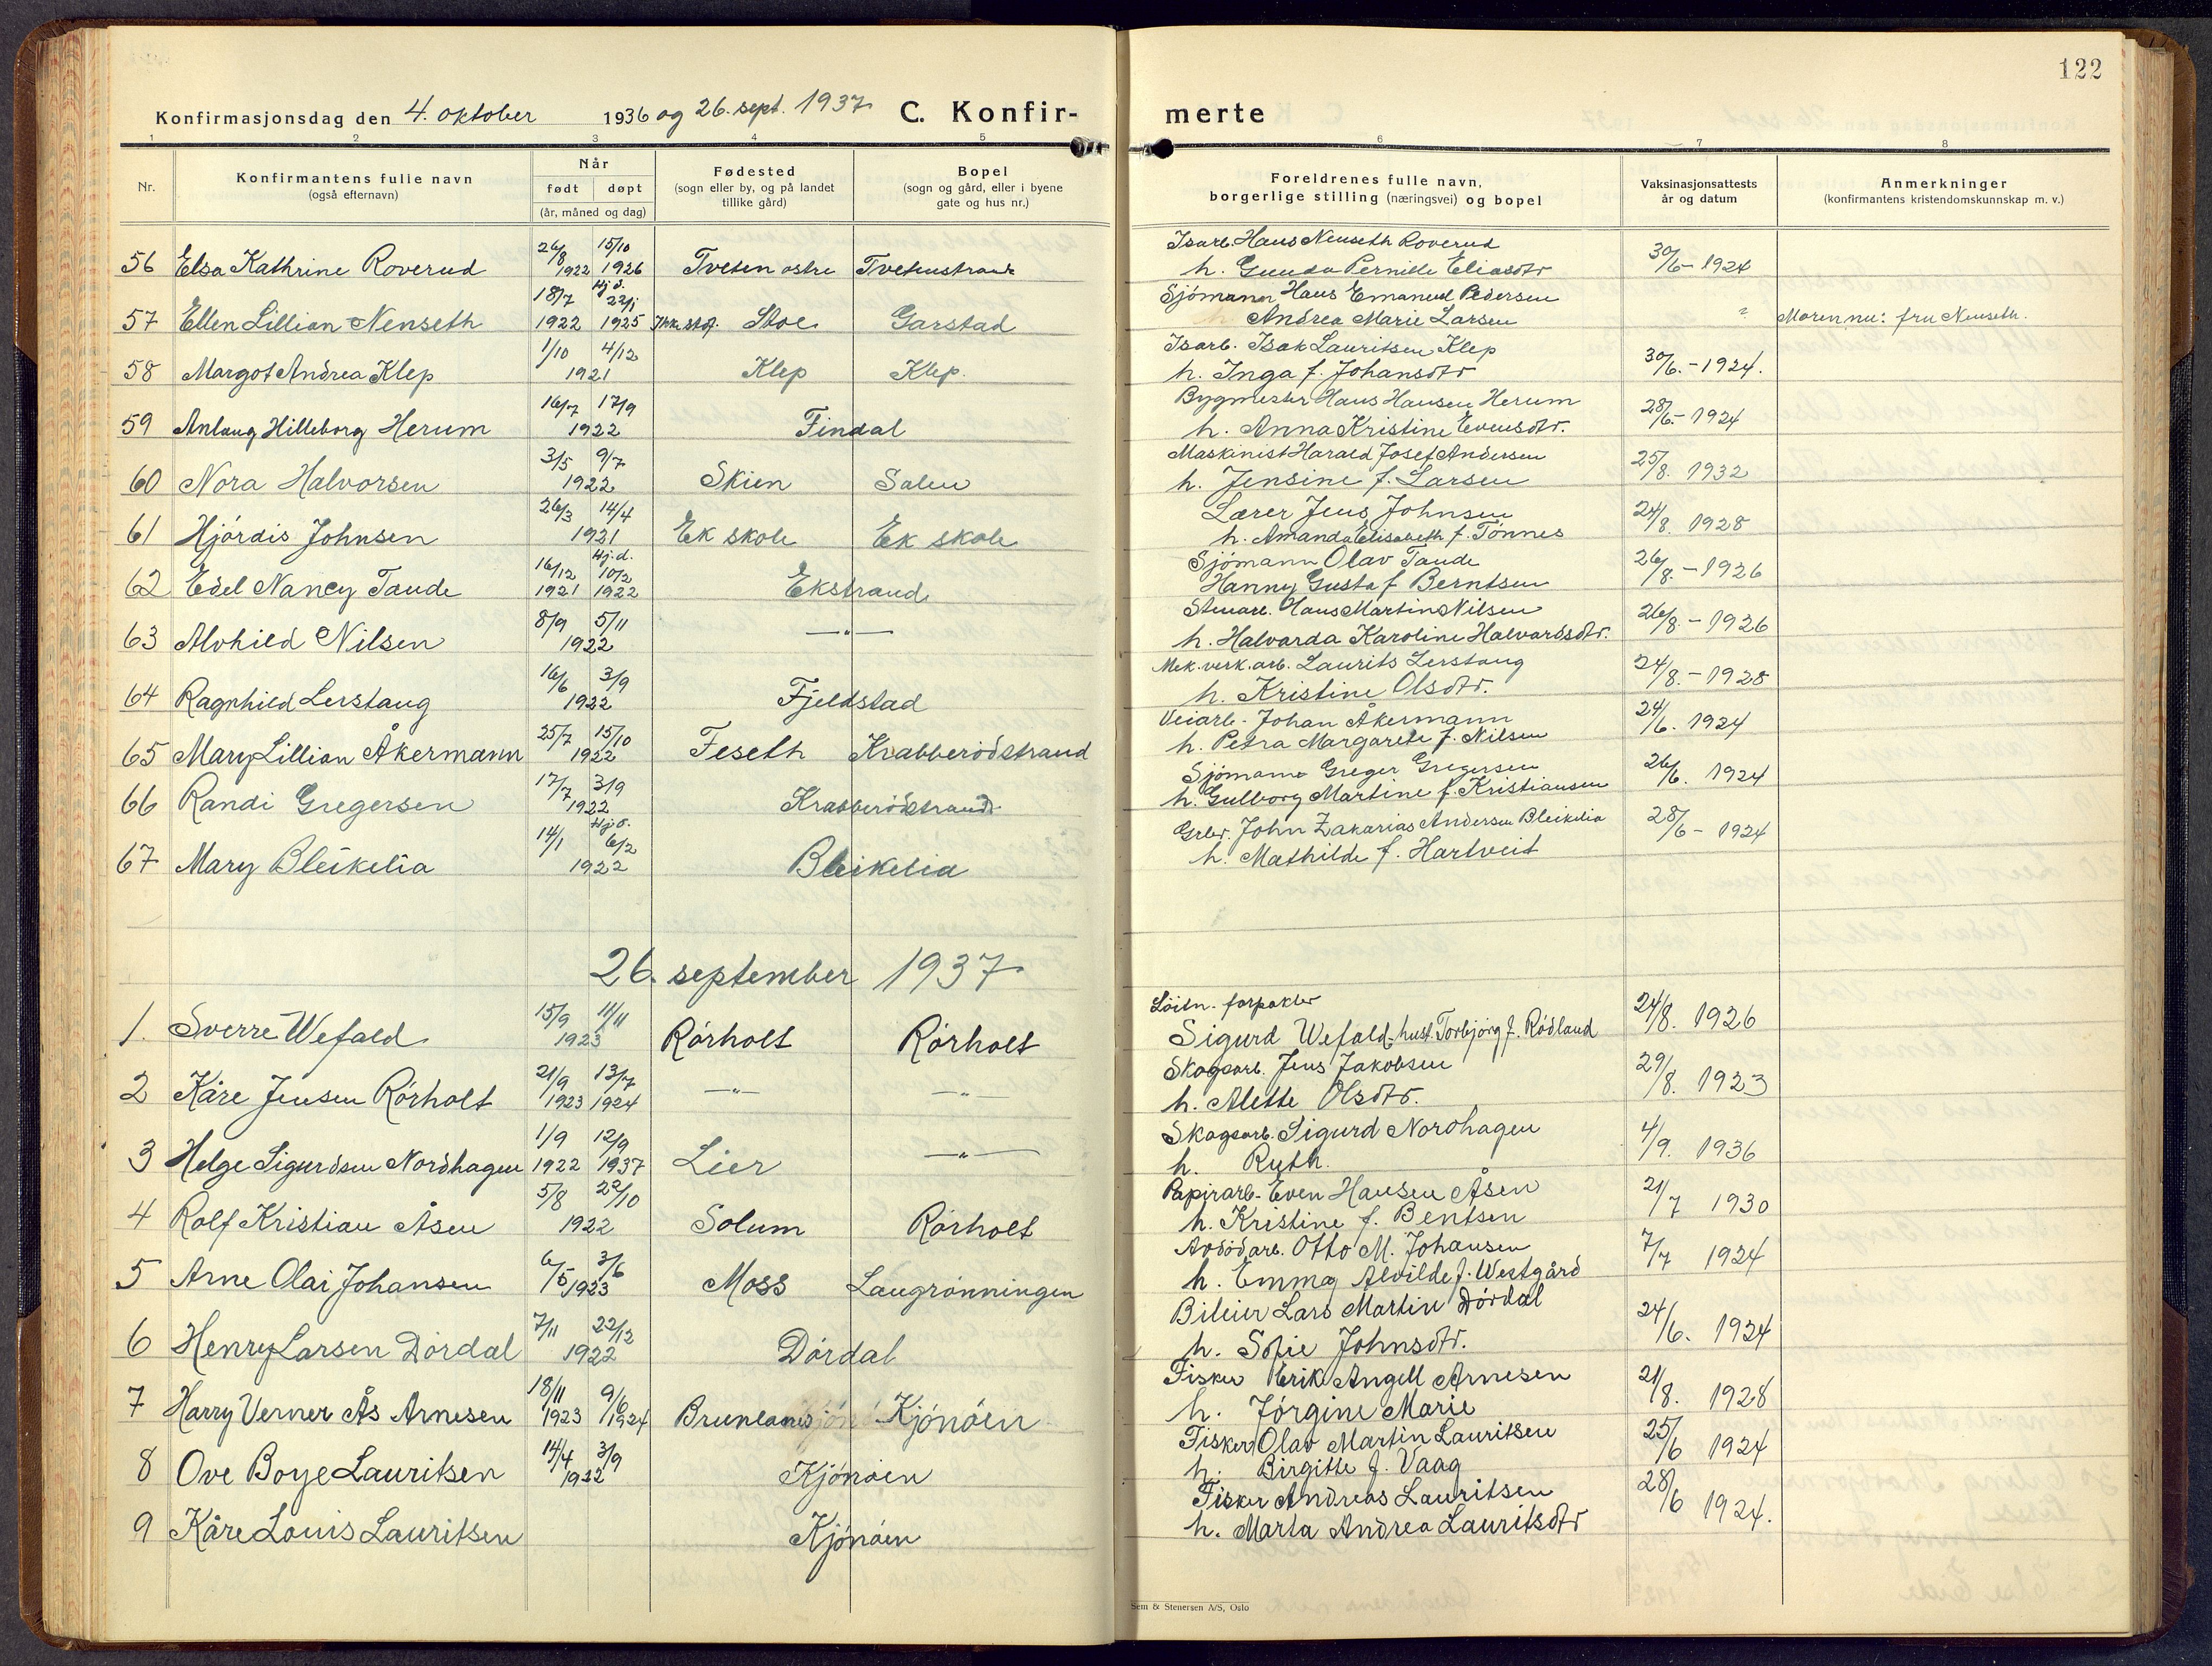 122
Konfirmasjonsdag den 4. oktober 1936 og 26. sept. 1937 C. Konfir-
merte
1 2 3 4 5
6 7 8
Nr.
Konfirmantens fulle navn
(også efternavn)
Når
født døpt
(år, måned og dag)
Fødested
(sogn eller by, og på landet
tillike gård)
Bopel
(sogn og gård, eller i byene
gate og hus nr.)
Foreldrenes fulle navn,
borgerlige stilling (næringsvei) og bopel
Vaksinasjonsattests
år og datum
Anmerkninger
(konfirmantens kristendomskunnskap m. v.)
26/8 15/10
56 Elsa Kathrine Roverud 1922 1926 Tveten østre Tvetenstrand
Isarb. Hans Nenseth Roverud
h. Gunda Pernille Eliasdtr 30/6 - 1924
18/7 Hj.d. 22/1
57 Ellen Lillian Nenseth 1922 1925 Stoe Garstad
Sjömann Hans Emanuel Pedersen
Andrea Marie Larsen ? Moren nu: fru Nenseth.
1/10 4/12
58 Margot Andrea Klep 1921 Klep Klep.
Isarb. Isak Lauritsen Klep
h. Inga f. Johansdtr 30/6. - 1924.
16/7 17/9
59 Anlaug Hilleborg Herum 1922 Findal
Bygmester Hans Hansen Herum
h. Anna Kristine Evensdtr. 28/6. - 1924
3/5 9/7
60 Nora Halvorsen 1922 Skien Salen
Maskinist Harald Josef Andersen
h. Jensine f. Larsen 25/8. 1932
26/3 14/4
61 Hjördis Johnsen 1921 Ek skole Ek skole
Lærer Jens Johnsen
h. Amanda Elisabeth f. Tönnes 24/8. 1928
16/12 Hj.d. 10/2
62 Edel Nancy Taude 1921 1922 Ekstrand
Sjömann Olav Taude
Hanny Gusta f Berntsen 26/8. - 1926
8/9 5/11
63 Alvhild Nilsen 1922 —"—
Stenarb. Hans Martin Nilsen
h. Halvarda Karoline Halvardsdtr. 26/8 - 1926
16/6 3/9
64 Ragnhild Lerstang 1922 Fjeldstad
Mek. verk. arb. Laurits Lerstang
h. Kristine Olsdtr. 24/8. - 1928
25/7 15/10
65 Mary Lillian Åkermann 1922 Feseth Krabberödstrand
Veiarb. Johan Åkermann
h. Petra Margarete f. Nilsen 24/6. 1924
17/7 3/9
66 Randi Gregersen 1922 Krabberödstrand
Sjömann Greger Gregersen
h. Gulborg Martine f. Kristiansen 26/6. 1924
14/1 Hj.d. 6/2
67 Mary Bleikelia 1922 Bleikelia
Grbr. John Zakarias Andersen Bleikelia
h. Mathilde f. Hartveit 28/6 - 1924
26. september 1937
15/9 11/11
1. Sverre Wefald 1923 Rörholt Rörholt
Löitn. forpakter
Sigurd Wefald - hust. Torbjörg f. Rödland 24/8. 1926
21/9 13/7
2 Kåre Jensen Rörholt 1923 1924 —"— —"—
Skogsarb. Jens Jakobsen
h. Alette Olsdtr. 29/8. 1923
1/9 12/9
3 Helge Sigurdsen Nordhagen 1922 1937 Lier —"—
Skogsarb. Sigurd Nordhagen
h. Ruth. 4/9. 1936
5/8 22/10
4 Rolf Kristian Åsen 1922 Solum Rörholt
Papirarb. Even Hansen Åsen
h. Kristine f. Bentsen 21/7 1930
6/5 3/6
5 Arne Olai Johansen 1923 Moss Laugrönningen
Otto M. Johansen
h. Emma Alvilde f. Westgård 7/7 1924
7/11 22/12
6 Henry Larsen Dördal 1922 Dördal
Bileier Lars Martin Dördal
h. Sofie Johnsdtr. 24/6. 1924
18/11 9/6
7 Harry Verner Ås Arnesen 1923 1924 Brunlanes Kjönöen
Fisker Erik Angell Arnesen
h. Jörgine Marie 21/8. 1928
14/4 3/9
8 Ove Boye Lauritsen 1922 Kjönöen
Fisker Olav Martin Lauritsen
h. Birgitte f. Vaag 25/6 1924
9 Kåre Louis Lauritsen Kjönöen
Fisker Andreas Lauritsen
h. Marta Andrea Lauritsdtr 28/6 1924.
Sem & Stenersen A/S, Oslo